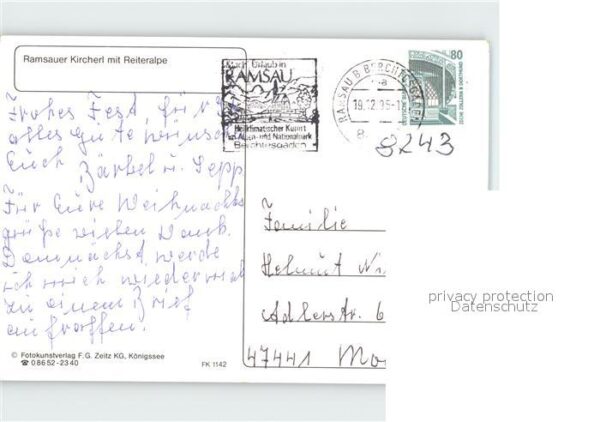 Ramsauer Kircherl mit Reiteralpe
Mach Urlaub in
RAMSAU
Heilklimatischer Kurort
im Alpen- und Nationalpark
Berchtesgaden
RAMSAU B BERCHTESGADEN
a
19.12.95-1
8
80
8243
Frohes Fest, für 96
alles gute wünsch
Euch Bärbel u. Sepp
Für Eure Weihnachts
grüße vielen Dank.
Demnächst werde
ich mich wieder mal
zu einem Brief
aufraffen.
Familie
Helmut
Adlerstr. 6
47441 Mo
privacy protection
Datenschutz
© Fotokunstverlag F.G. Zeitz KG, Königssee
☎ 0 86 52-23 40
FK 1142